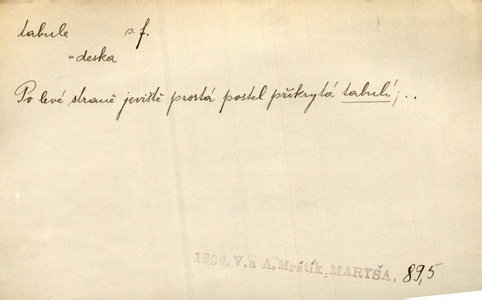 tabule s. f.
=deska
Po levé straně jeviště prostá postel přikrytá tabulí;..
1894, V. a A. Mrštík: MARYŠA, 89,5